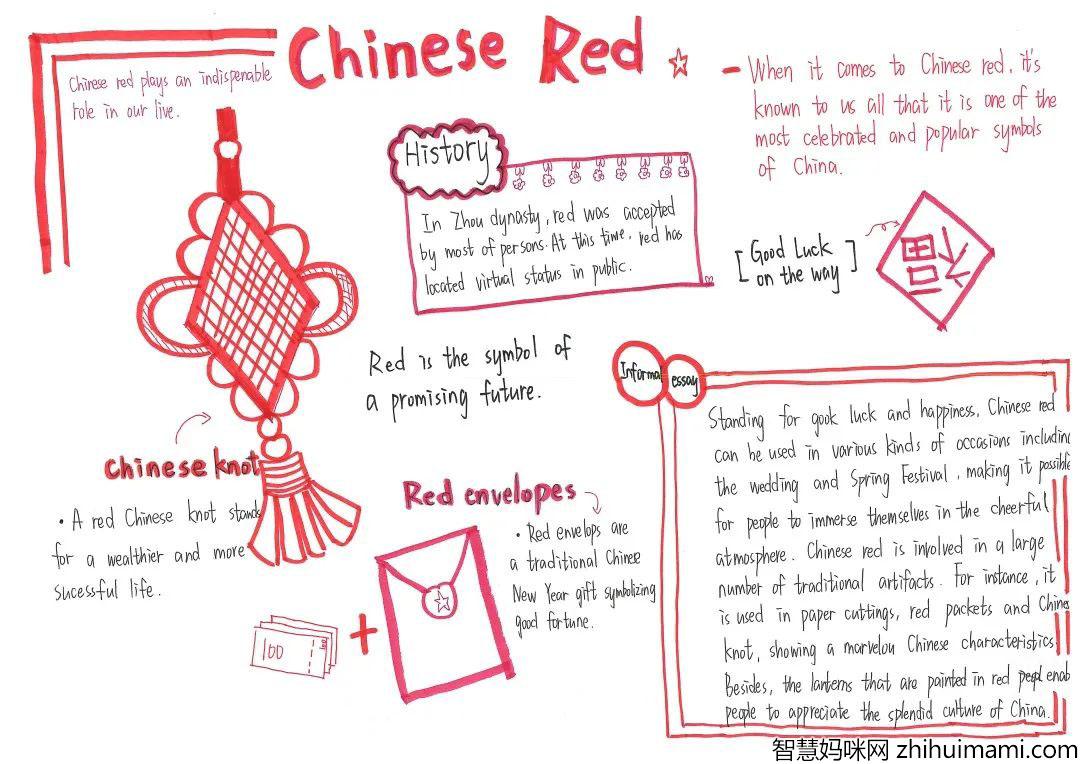 Chinese Red
Chinese red plays an indispenable
role in our live.
- When it comes to Chinese red, it's
known to us all that it is one of the
most celebrated and popular symbols
of China.
History
In Zhou dynasty, red was accepted
by most of persons. At this time, red has
located virtual status in public.
[Good Luck
on the way]
福
Red is the symbol of
a promising future.
Chinese knot
· A red Chinese knot stands
for a wealthier and more
sucessful life.
Red envelopes
· Red envelops are
a traditional Chinese
New Year gift symbolizing
good fortune.
100
100
Informal essay
Standing for gook luck and happiness, Chinese red
can be used in various kinds of occasions including
the wedding and Spring Festival, making it possible
for people to immerse themselves in the cheerful
atmosphere. Chinese red is involved in a large
number of traditional artifacts. For instance, it
is used in paper cuttings, red packets and Chinese
knot, showing a marvelou Chinese characteristics.
Besides, the lanterns that are painted in red enab
people to appreciate the splendid culture of China.
智慧妈咪网 zhihuimami.com